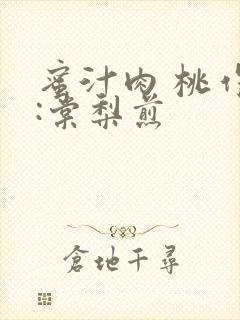 蜜汁肉桃
:棠梨煎
倉地千尋